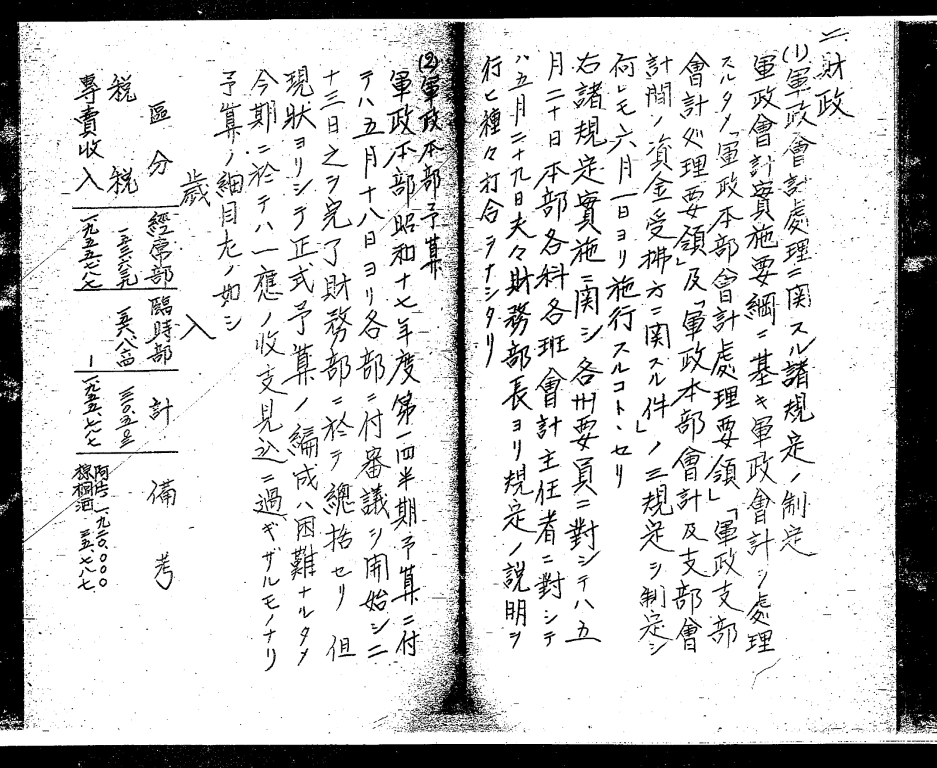 二、財政
(1)軍政會計處理ニ関スル諸規定ノ制定
軍政會計實施要綱ニ基キ軍政會計ヲ處理
スルタメ「軍政本部會計處理要領」「軍政支部
會計処理要領」及「軍政本部會計及支部會
計間ノ資金受拂方ニ関スル件」ノ三規定ヲ制定シ
何レモ六月一日ヨリ施行スルコトヽセリ
右諸規定實施ニ関シ各州要員ニ對シテハ五
月二十日本部各科各班會計主任者ニ對シテ
ハ五月二十九日夫々財務部長ヨリ規定ノ説明ヲ
行ヒ種々打合ヲナシタリ
(2)軍政本部予算
軍政本部昭和十七年度第一四半期予算ニ付
テハ五月十八日ヨリ各部ニ付審議ヲ開始シ二
十三日之ヲ完了財務部ニ於テ總括セリ 但
現状ヨリシテ正式予算ノ編成ハ困難ナルタメ
今期ニ於テハ一應ノ收支見込ニ過ギザルモノナリ
予算ノ細目左ノ如シ
歳 入
區 分 經常部 臨時部 計 備 考
税 税
專賣收入 一九五五七八七 ー 一九五五七八七 阿片 一九二〇、〇〇〇
椋梠酒 三五、七八七